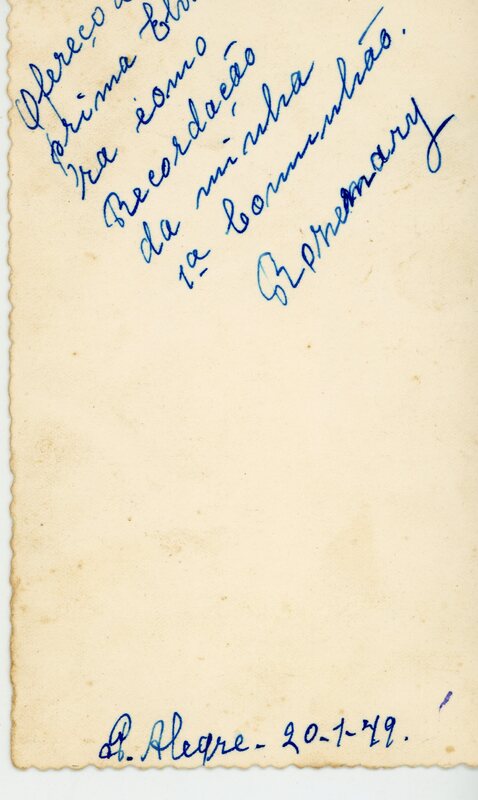 Ofereço a
prima El
ra como
Recordação
da minha
1ª Comunhão.
Rosemary
P. Alegre - 20-1-49.